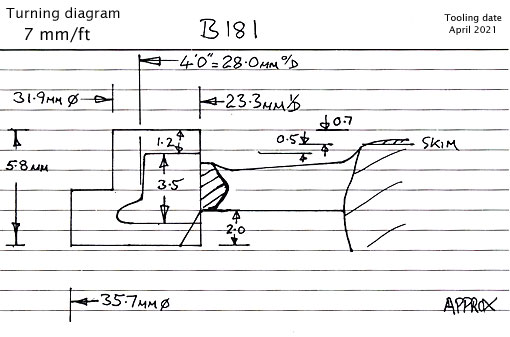 Turning diagram
7 mm/ft
B181
Tooling date
April 2021
4'0" = 28.0MM O/D
31.9MM Ø
23.3MM I/D
0.7
1.2
0.5
SKIM
5.8MM
3.5
2.0
35.7MM Ø
APPROX